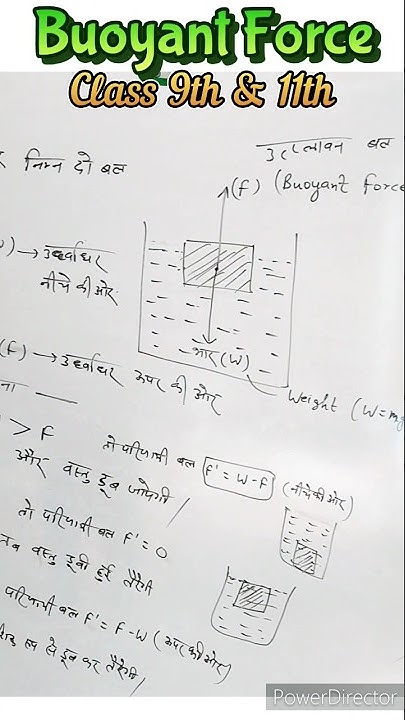 Buoyant Force
Class 9th & 11th
उत्प्लावन बल
निम्न दो बल
(f) (Buoyant Force
) → उर्ध्वाधर
नीचे की ओर
भार (W)
(f) → उर्ध्वाधर ऊपर की ओर
Weight (W=mg
> F तो परिणामी बल F' = W-F (नीचे की ओर)
और वस्तु डूब जायेगी /
तो परिणामी बल F' = 0
वस्तु डूबी हुई तैरेगी
परिणामी बल F' = F-W (ऊपर की ओर)
रूप से डूब कर तैरेगी /
PowerDirector